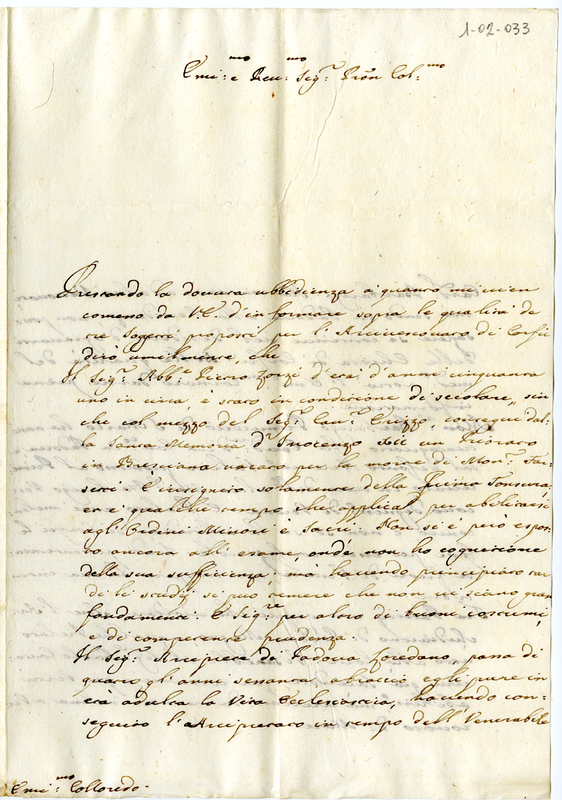 1-02-033
Emi:mo e Reu:mo Sig.r Pron Col:mo
Prestando la douuta ubbidienza a quanto mi uien
comesso da V.E. d'informare sopra le qualità de
tre Sogetti proposti per l'Arciuescouato di Corfù
dirò umilmente, che
Il Sig.r Abb.e Pietro Zorzi d'età d'anni cinquanta
uno in circa, è stato in condizione di secolare, sin
che col mezzo del Sig.r Cau.r Erizzo, conseguì dal:
la Santa Memoria d'Inocenzo XII un Priorato
in Bresciana uacato per la morte di Mon.r
E insignito solamente della Prima Tonsura,
et è qualche tempo che applica per abilitarsi
agl'Ordini Minori è Sacri. Non si è però espos:
to ancora all'esame, onde non ho cognizione
della sua sufficienza, mà hauendo principiato tar
di li studij si può temere che non ui siano gran
fondamenti. E Sig.re per altro di buoni costumi,
e di competente prudenza.
Il Sig.r Arciprete di Padoua Loredano, passa di
quatro gl'anni sessanta, abraciò egli pure in
età adulta la Vita Ecclesiastica, hauendo con:
seguito l'Arcipretato in tempo dell'Venerabile
Emi:mo Colloredo.